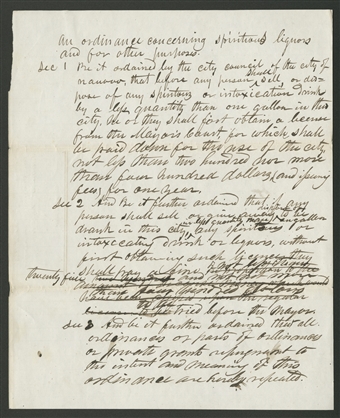 an ordinance concerning spiritious liquors
and for other purposes.
Sec 1 Be it ordained by the city council of the city of
that before any person shall sell or dis-
pose of any spiritous or intoxication drink
by a less quantity than one gallon in this
city, he or they shall first obtain a license
from the Mayors Court for which shall
be paid down for the use of the city
not less than two hundred nor more
than four hundred dollars,
fees for one year.
Sec 2 And Be it further ordained that if any
person shall sell or give away to be
drank in this city, any spiritous or
intoxicating drink or liquors, without
first obtaining such license
shall pay a fine
twenty five
to be tried before the Mayor
Sec 3 And be it further ordained that all
ordinances or parts of ordinances
or private grants repugnant to
the intent and meaning of this
ordinance are hereby repealed.